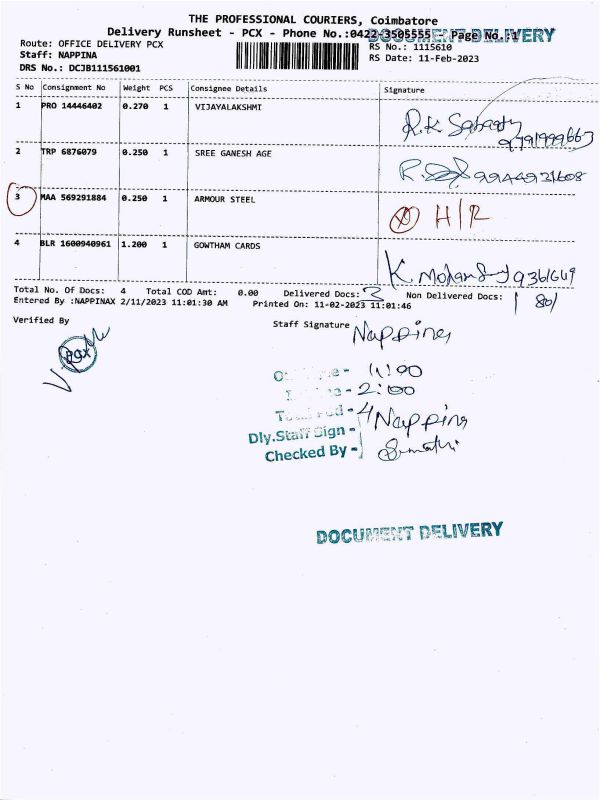 THE PROFESSIONAL COURIERS, Coimbatore
Delivery Runsheet - PCX - Phone No.:0422-3505555 - Page No.:1
DOCUMENT DELIVERY
Route: OFFICE DELIVERY PCX
RS No.: 1115610
Staff: NAPPINA
RS Date: 11-Feb-2023
DRS No.: DCJB111561001
S No Consignment No Weight PCS Consignee Details Signature
1 PRO 14446402 0.270 1 VIJAYALAKSHMI
R.K
2 TRP 6876079 0.250 1 SREE GANESH AGE
9944931608
3 MAA 569291884 0.250 1 ARMOUR STEEL
H/R
4 BLR 1600940961 1.200 1 GOWTHAM CARDS
K Mohan
Total No. Of Docs: 4 Total COD Amt: 0.00 Delivered Docs: 3 Non Delivered Docs: 1
Entered By :NAPPINAX 2/11/2023 11:01:30 AM Printed On: 11-02-2023 11:01:46
Verified By
Staff Signature Nappina
PCX
11:00
2:00
4 Nappina
Dly.Staff Sign -
Checked By -
DOCUMENT DELIVERY